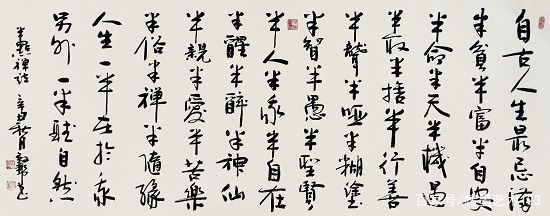 自古人生最忌滿
半貧半富半自安
半命半天半機遇
半取半捨半行善
半聾半啞半糊塗
半智半愚半聖賢
半人半我半自在
半醒半醉半神仙
半親半愛半苦樂
半俗半禪半隨緣
人生一半在於我
另外一半聽自然
禪詩
百家号/